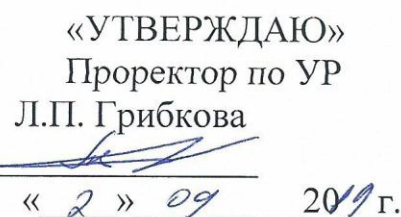 «УТВЕРЖДАЮ»
Проректор по УР
Л.П. Грибкова
« 2 » 09 2019 г.